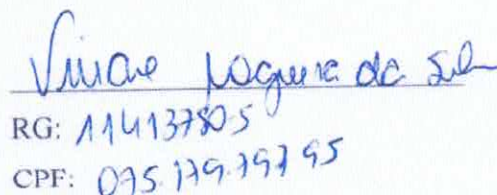 Viviane Nogueira da Silva
RG: 114137805
CPF: 095.179.797 95